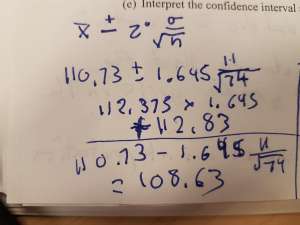 (e) Interpret the confidence interval
x̄ ± z* σ/√n
110.73 ± 1.645 11/√74
112.375 × 1.645
+ 112.83
110.73 - 1.645 11/√74
= 108.63